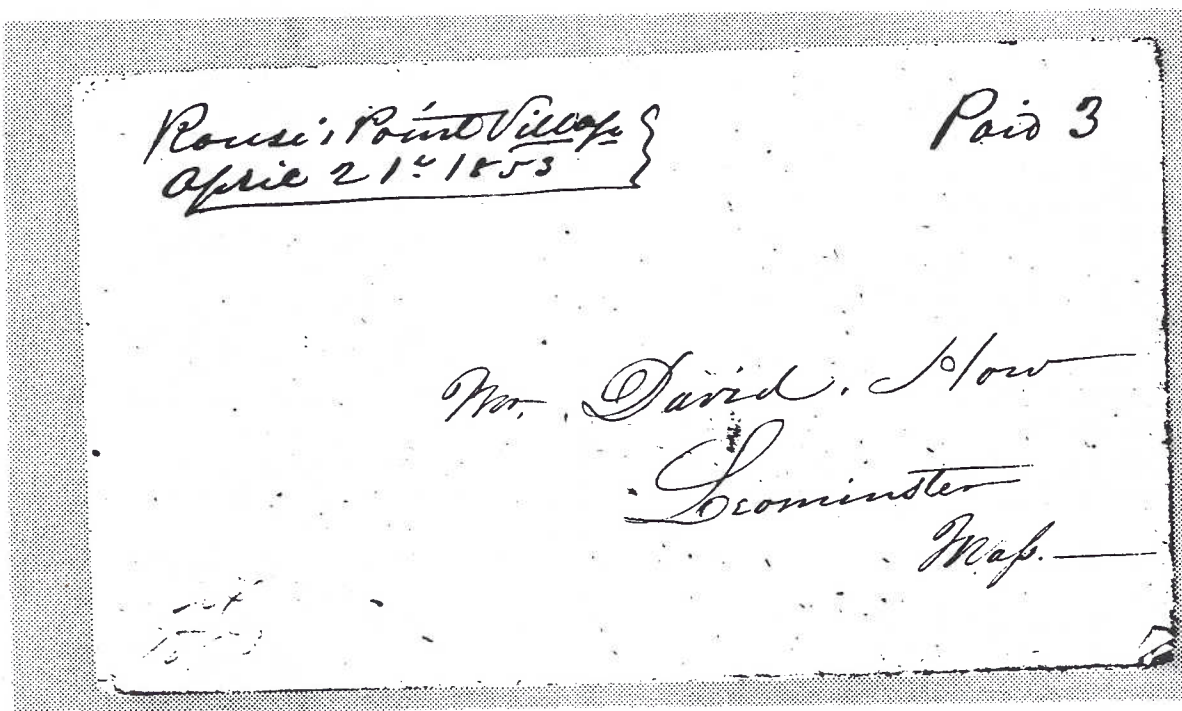 Rouse's Point Village
April 21st 1853
Paid 3
Mr. David. How
Leominster
Mass.